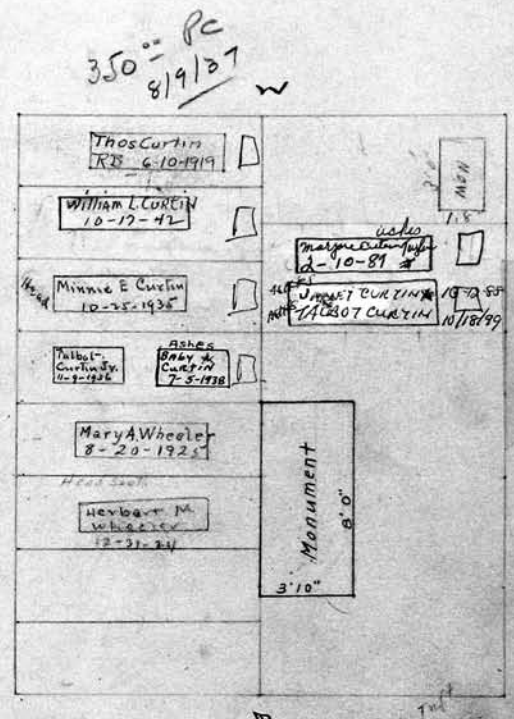 350 00 PC
8/9/37
W
Thos Curtin
RB 6-10-1919
William L. CURTIN
10-17-42
Head
Minnie E Curtin
10-25-1935
Talbot
Curtin Jr.
11-9-1936
Ashes
BABY
CURTIN
7-5-1938
Mary A. Wheeler
8-20-1925
Head South
Herbert M
Wheeler
12-31-24
3'0"
MON
1'8"
ashes
Marjorie Curtin
2-10-89
ASHES
JANET CURTIN 10-12-88
ASHES
TALBOT CURTIN 10/18/99
Monument
8'0"
3'10"